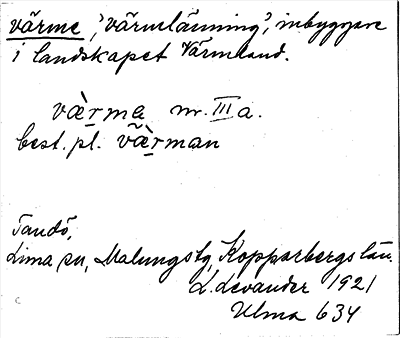 värme, 'värmlänning', inbyggare
i landskapet Värmland.
væṟma m. III a.
best. pl. vǣ̀ṟman
Tandö,
Lima sn, Malungs tg, Kopparbergs län.
L. Levander 1921
Ulma 634